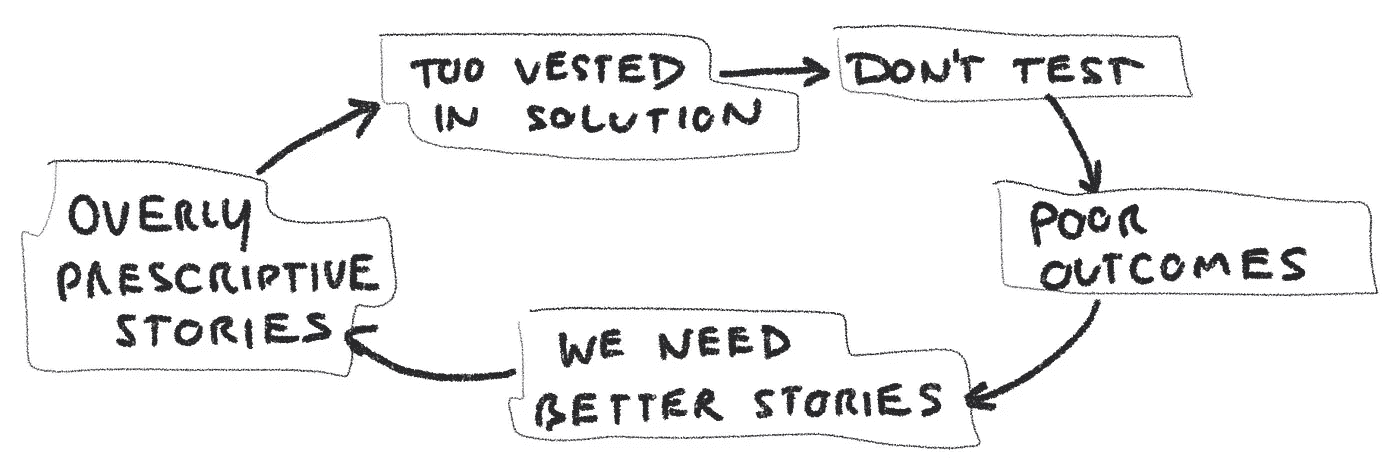 TOO VESTED
IN SOLUTION
DON'T TEST
POOR
OUTCOMES
WE NEED
BETTER STORIES
OVERLY
PRESCRIPTIVE
STORIES